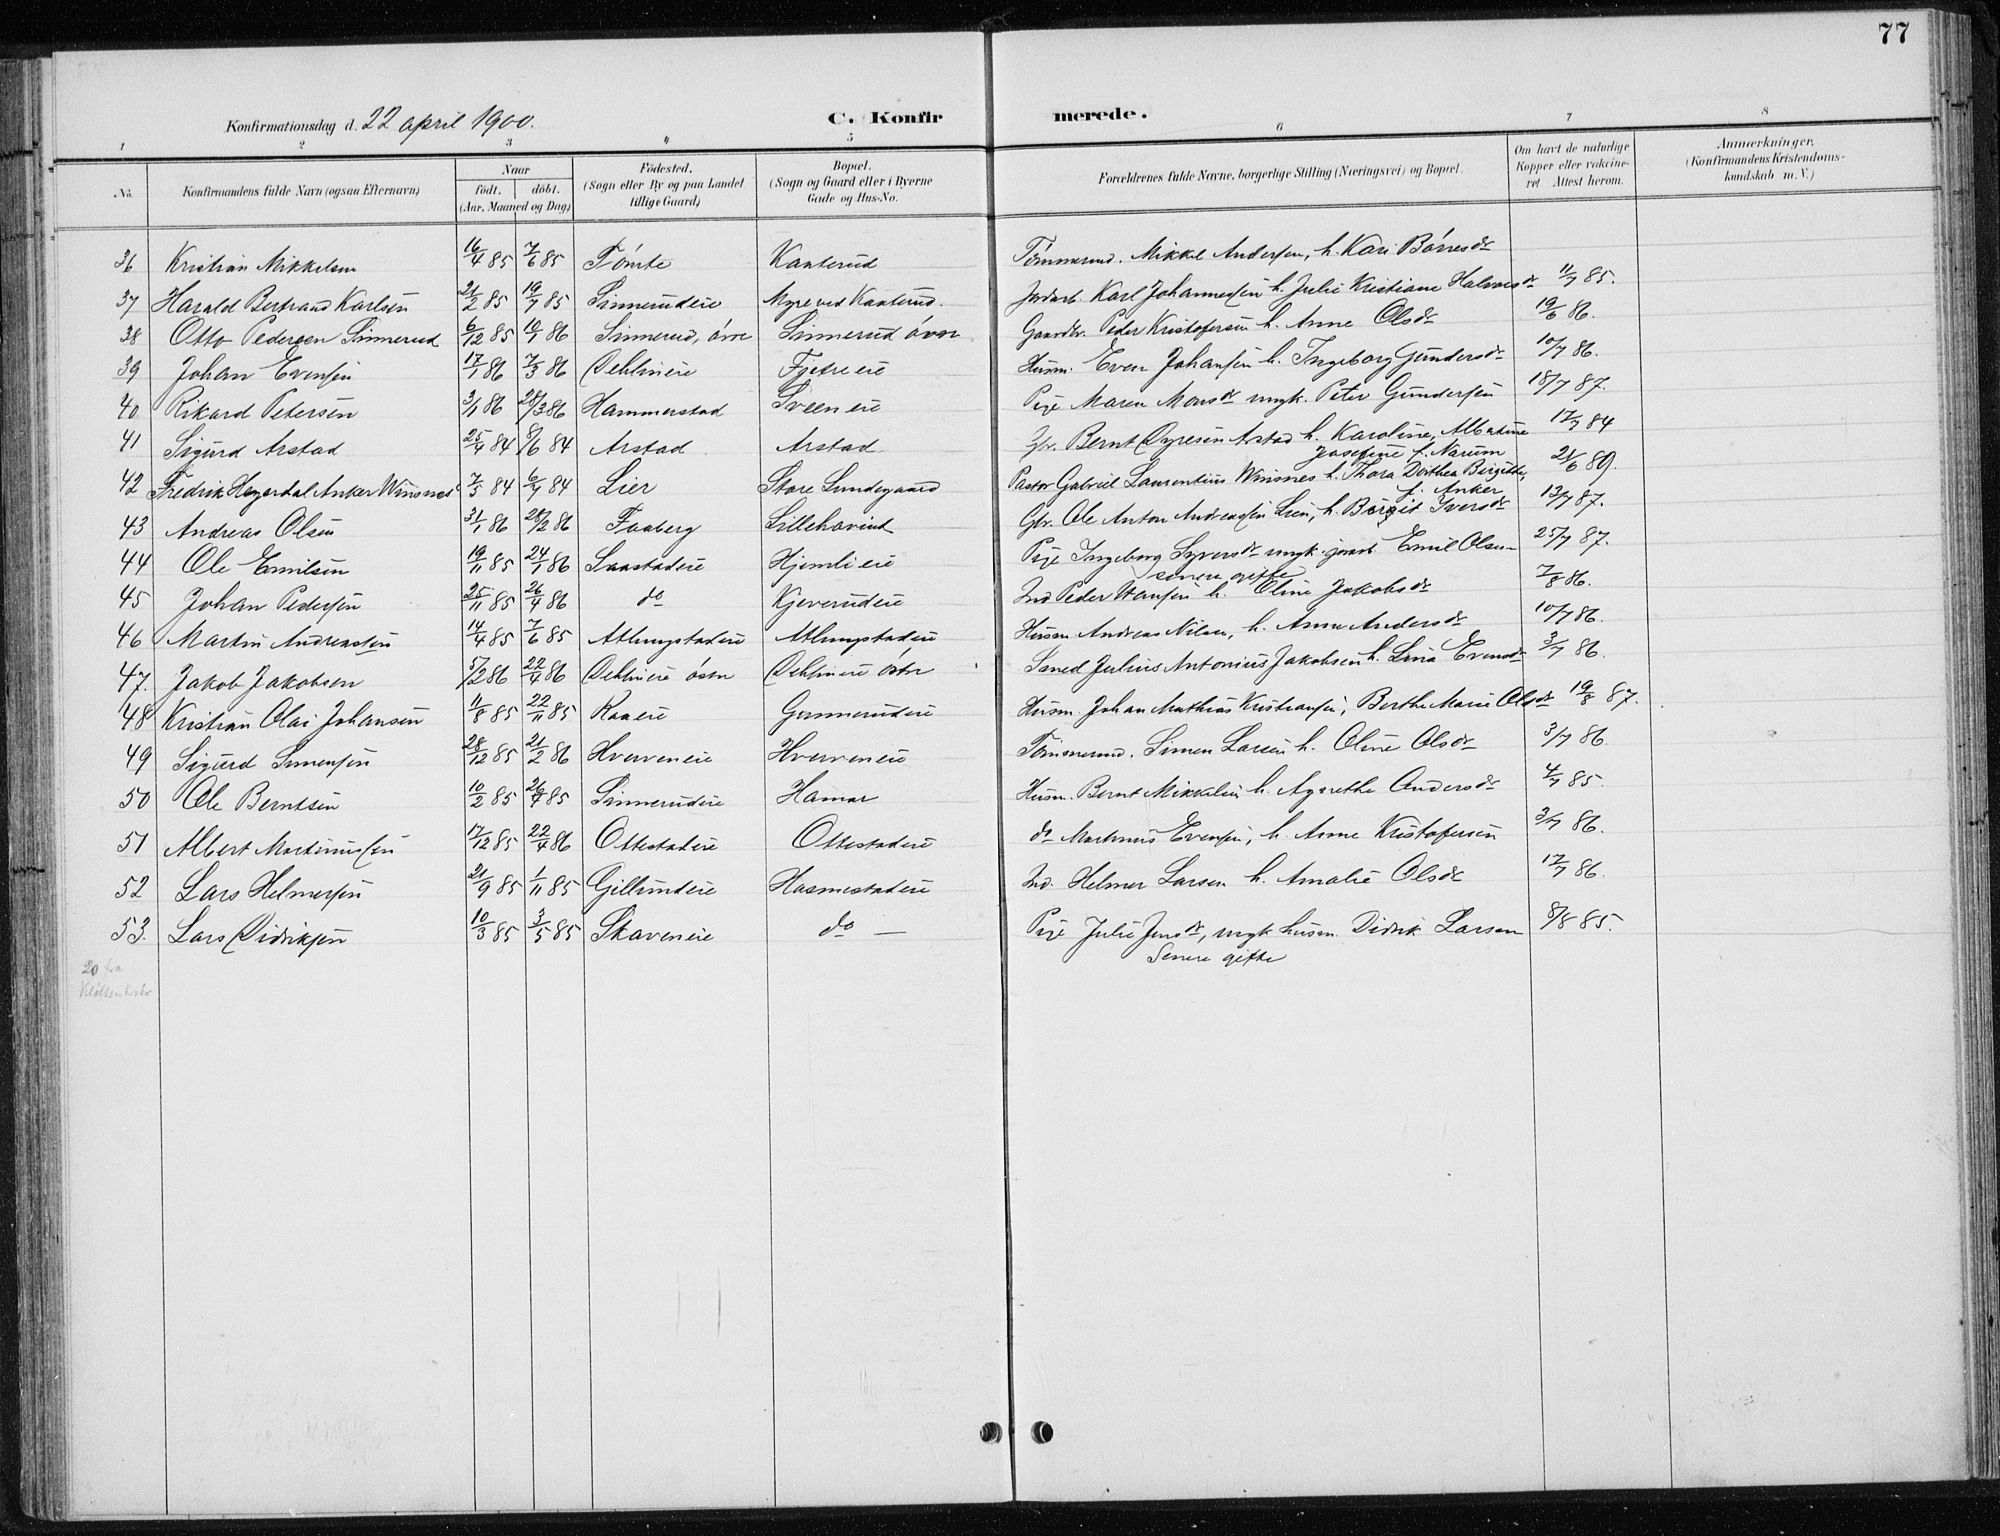 77
Konfirmationsdag d. 22 april 1900. C. Konfirmerede.
1 2 3 4 5 6 7 8
No. Konfirmandens fulde Navn (ogsaa Efternavn) Naar födt. döbt. (Aar, Maaned og Dag) Födested. (Sogn eller By og paa Landet tillige Gaard) Bopæl. (Sogn og Gaard eller i Byerne Gade og Hus-No. Forældrenes fulde Navne, borgerlige Stilling (Næringsvei) og Bopæl. Om havt de naturlige Kopper eller vaccineret Attest herom. Anmærkninger. (Konfirmandens Kristendomskundskab m. V.)
36 Kristian Mikkelsen 16/4 85 7/6 85 Tömte Kaaterud Tömmermd. Mikkel Andersen, h. Kari Börresdr
37 Harald Bertrand Karlsen 21/2 85 19/7 85 Sinnerudeie Myre ved Kaaterud. Jordarb. Karl Johannessen h. Julie Kristiane Halvorsdr 11/7 85.
38 Otto Pedersen Sinnerud 6/12 85 10/1 86 Sinnerud, övre Sinnerud övre Gaardbr. Peder Kristofersen h. Anne Olsdr 19/6 86.
39 Johan Evensen 17/1 86 7/3 86 Oehlineie Fjetreeie Husm. Even Johansen h. Ingeborg Gundersdr 10/7 86.
40 Rikard Petersen 3/1 86 28/3 86 Hammerstad Sveen eie Pige Maren Monsdr ungk. Peter Gundersen 18/7 87.
41 Sigurd Arstad 25/4 84 8/6 84 Arstad Arstad Gbr. Bernt Dyresen Arstad h. Karoline, Albertine Josefine f. Narum 17/7 84
42 Fredrik Heyerdal Anker Winsnes 7/5 84 6/7 84 Lier Store Lundegaard Pastor Gabriel Laurentius Winsnes h. Thora Dorthea Birgitte, f. Anker 21/6 89.
43 Andreas Olsen 31/1 86 28/2 86 Faaberg Lillehovind Gbr. Ole Anton Andreassen Lien, h. Borgit Iversdr 13/7 87.
44 Ole Emilsen 19/11 85 24/1 86 Saastadeie Hjemlieie Pige Ingeborg Syversdr ungk. jordb. Emil Olsen senere gifte 25/7 87.
45 Johan Pedersen 25/11 85 26/4 86 do Kjeverudeie Ind. Peder Hansen h. Oline Jakobsdr 7/8 86.
46 Martin Andreassen 14/4 85 7/6 85 Atlungstadeie Atlungstadeie Husm Andreas Nilsen, h. Anne Andersdr 10/7 86.
47. Jakob Jakobsen 5/2 86 22/4 86 Oehlineie östre Oehlineie östre Smed Julius Antonius Jakobsen h. Lina Evensdr 3/7 86.
48 Kristian Olai Johansen 11/8 85 22/11 85 Raaeie Gunnerudeie Husm. Johan Mathias Kristiansen, Berthe Marie Olsdr 19/8 87.
49 Sigurd Simensen 28/12 85 21/2 86 Hverveneie Hverveneie Tömmermd. Simen Larsen h. Oline Olsdr 3/7 86.
50 Ole Berntsen 10/2 85 26/4 85 Sinnerudeie Hamar Husm. Bernt Mikkelsen h. Agnethe Andersdr 4/7 85.
51 Albert Martinussen 17/12 85 22/4 86 Ottestadeie Ottestadeie do Martinus Evensen, h. Anne Kristofersen 3/7 86.
52 Lars Helmersen 21/9 85 1/11 85 Gillundeie Hasmestadeie Ind. Helmer Larsen h. Amalie Olsdr 17/7 86.
53. Lars Didriksen 10/3 85 3/5 85 Skaveneie do — Pige Julie Jensdr, ungk husm Didrik Larsen Senere gifte 8/8 85.
20 fra